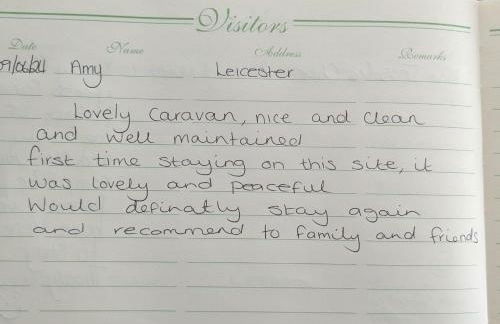 Visitors
Date Name Address Remarks
09/06/24 Amy Leicester
Lovely caravan, nice and clean
and well maintained
first time staying on this site, it
was lovely and peaceful
Would definatly stay again
and recommend to family and friends